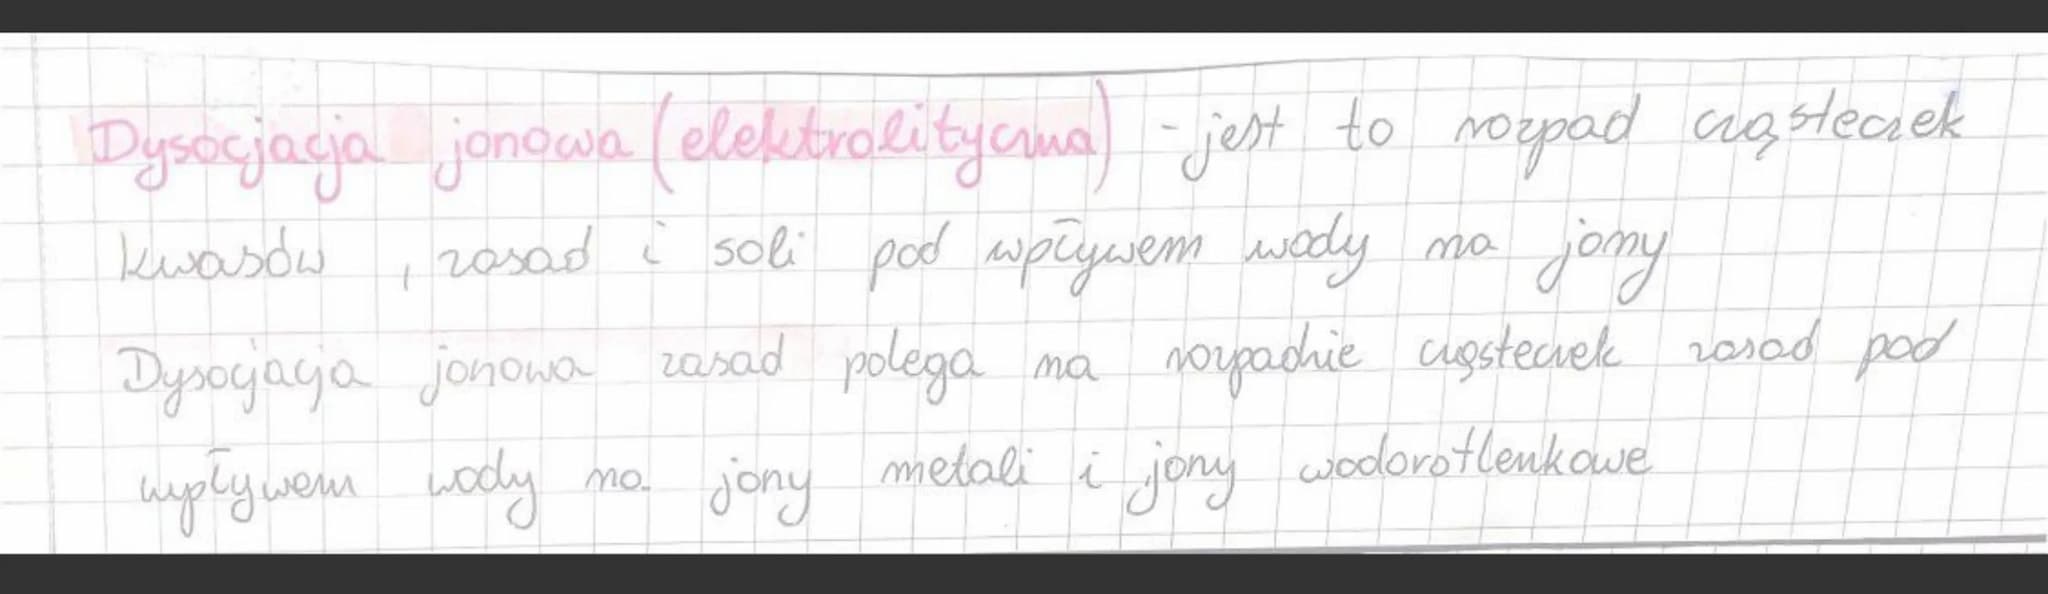 Dysocjacja jonowa (elektrolityczna) - jest to rozpad cząsteczek
kwasów , zasad i soli pod wpływem wody na jony
Dysocjacja jonowa zasad polega na rozpadzie cząsteczek zasad pod
wpływem wody na jony metali i jony wodorotlenkowe